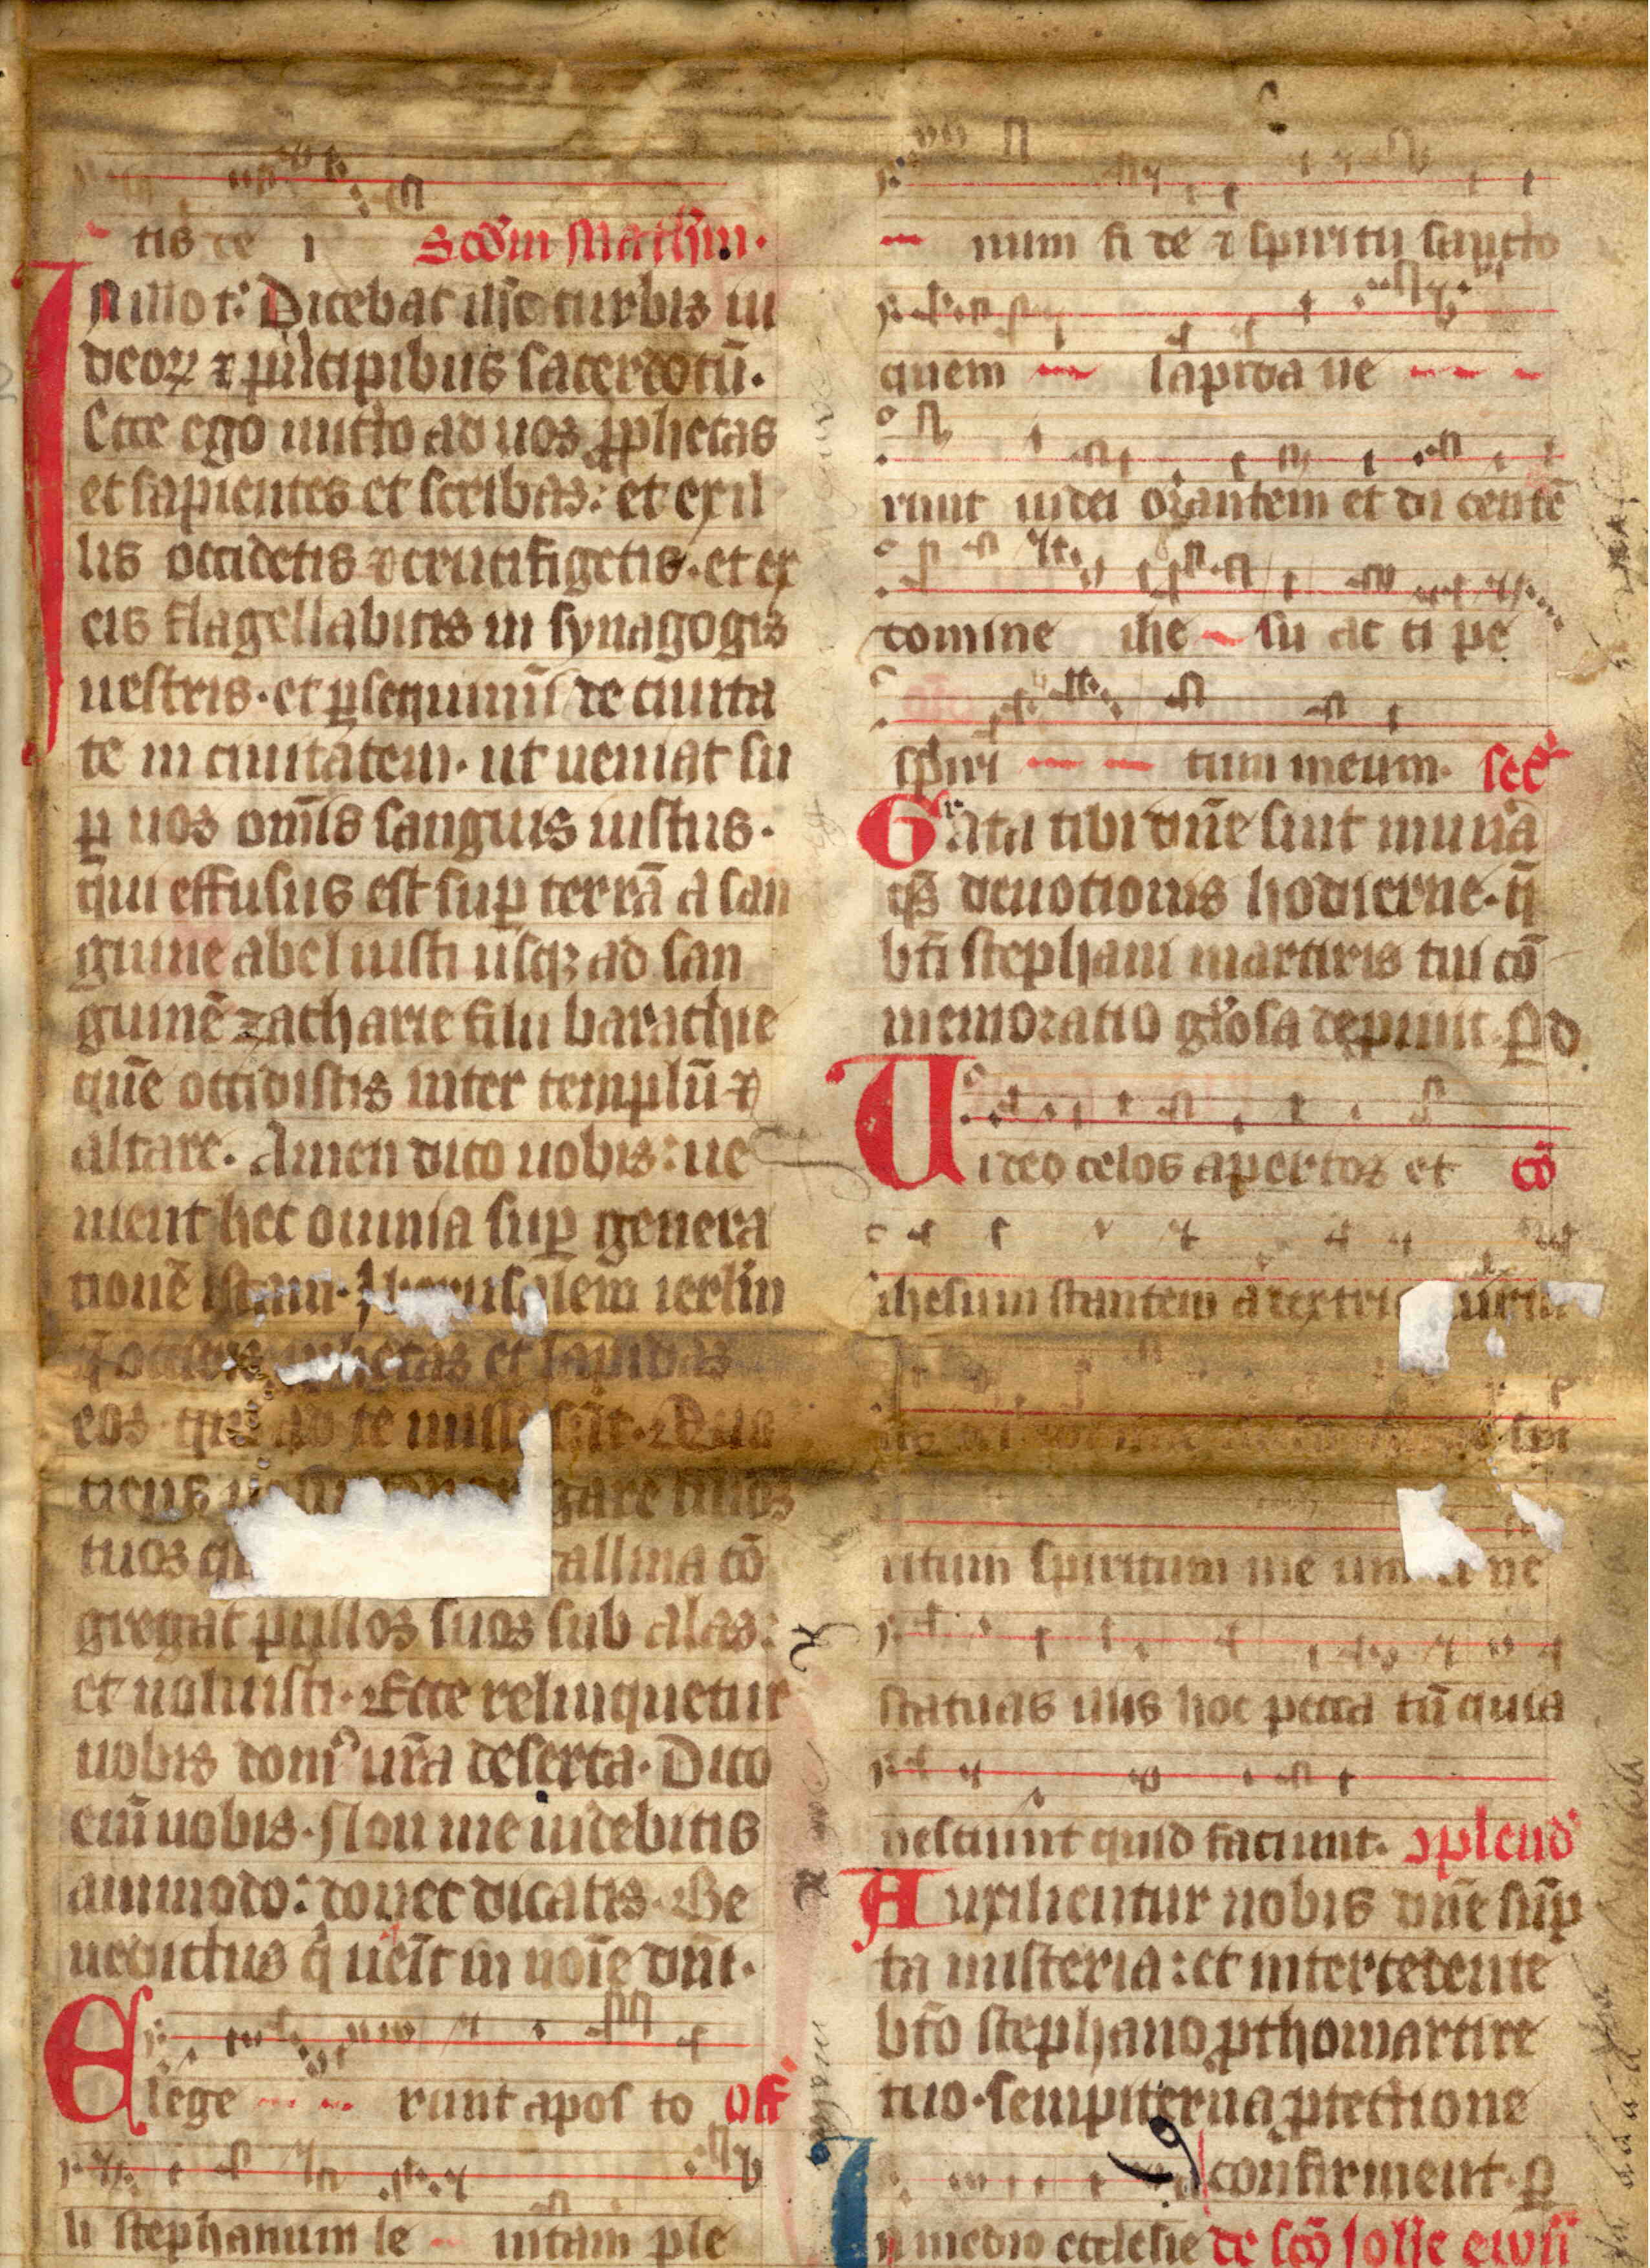 tis de i Scd̄m Math̄m.
In illo t̄: Dicebat ih̄c turbis iu
deoꝝ ⁊ pͥncipibus sacerdotū.
Ecce ego mitto ad uos ꝓphetas
et sapientes et scribas: et ex il
lis occidetis ⁊ crucifigetis. et ex
eis flagellabitis in synagogis
uestris. et ꝑsequimīī de ciuita
te in ciuitatem. ut ueniat su
ꝑ uos om̄is sanguis iustus.
qui effusus est suꝑ terrā a san
guine abel iusti usqꝫ ad san
guinē zacharie filii barachie
quē occidistis inter templū ⁊
altare. Amen dico uobis: ue
nient hec omnia suꝑ genera
tionē istam. Iherusalem ierl̄m
q̄ occidis ꝓphetas et lapidas
eos qui ad te missi sūt. Quo
ciens gare filios
tuos allina cō
gregat pullos suos sub alas:
et noluisti. Ecce relinquetur
uobis domꝰ ur̄a deserta. Dico
eni̅ uobis. Non me uidebitis
ammodo: donec dicatis. Be
nedictus q̇ uen̄it in noīe dn̄i.
Elege runt apos to off̄
li stephanum le uitam ple
num fi de ⁊ spiritu sancto
quem lapida ue
runt iudei orantem et di centē
domine ihe su ac ci pe
spiri tum meum. sec̄
Grata tibi dn̄e sint mun̄a
qs̄ deuotionis hodierne. q̄
bt̄i stephani martiris tui cō
memoratio gl̄osa depmit. ꝑ d
Uideo celos apertos et cō
ihesum stantem a dextris uirtu
spi
ritum spiritum me um ne
statuas illis hoc pecca tū quia
nesciunt quid faciunt. ꝯplend̄
Auxilientur nobis dn̄e sūp
ta misteria: et intercedente
bt̄o stephano ꝓthomartire
tuo. sempiterna ꝓtectione
confirment. ꝑ
In medio ecclesie de scō Ioh̄e ewā